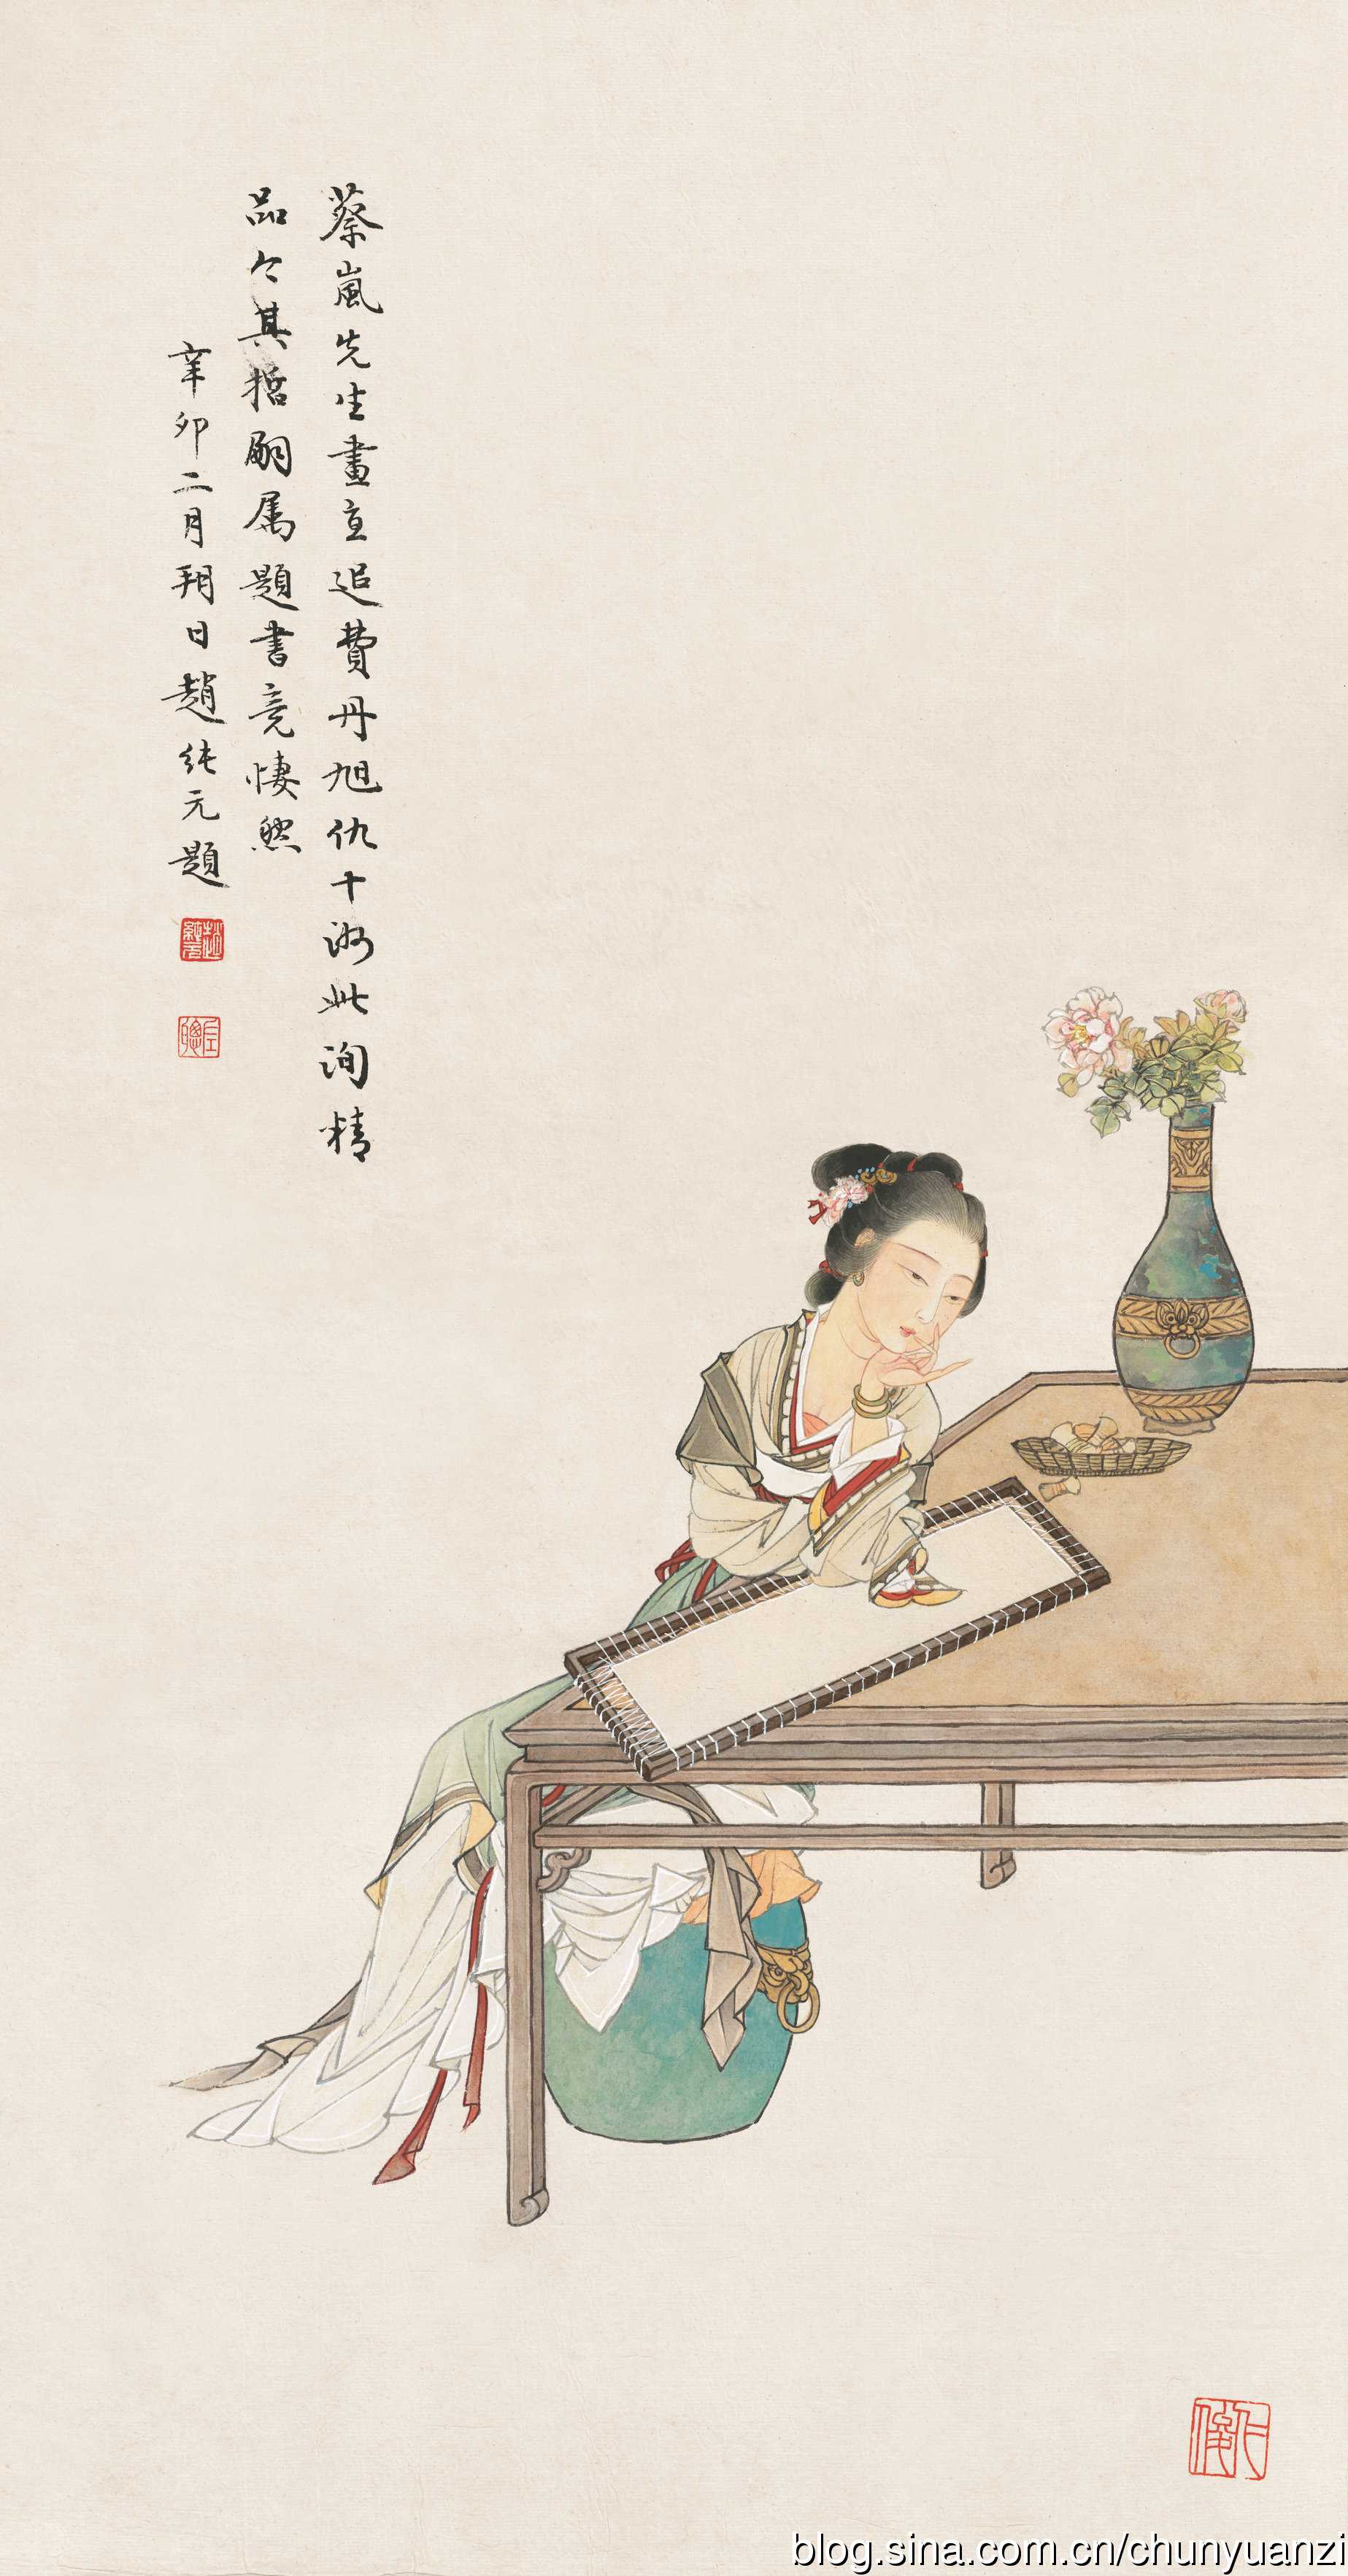 蔡嵐先生畫直追費丹旭仇十洲此洵精
品也其哲嗣属題書竟悽然
辛卯二月朔日趙純元題
blog.sina.com.cn/chunyuanzi